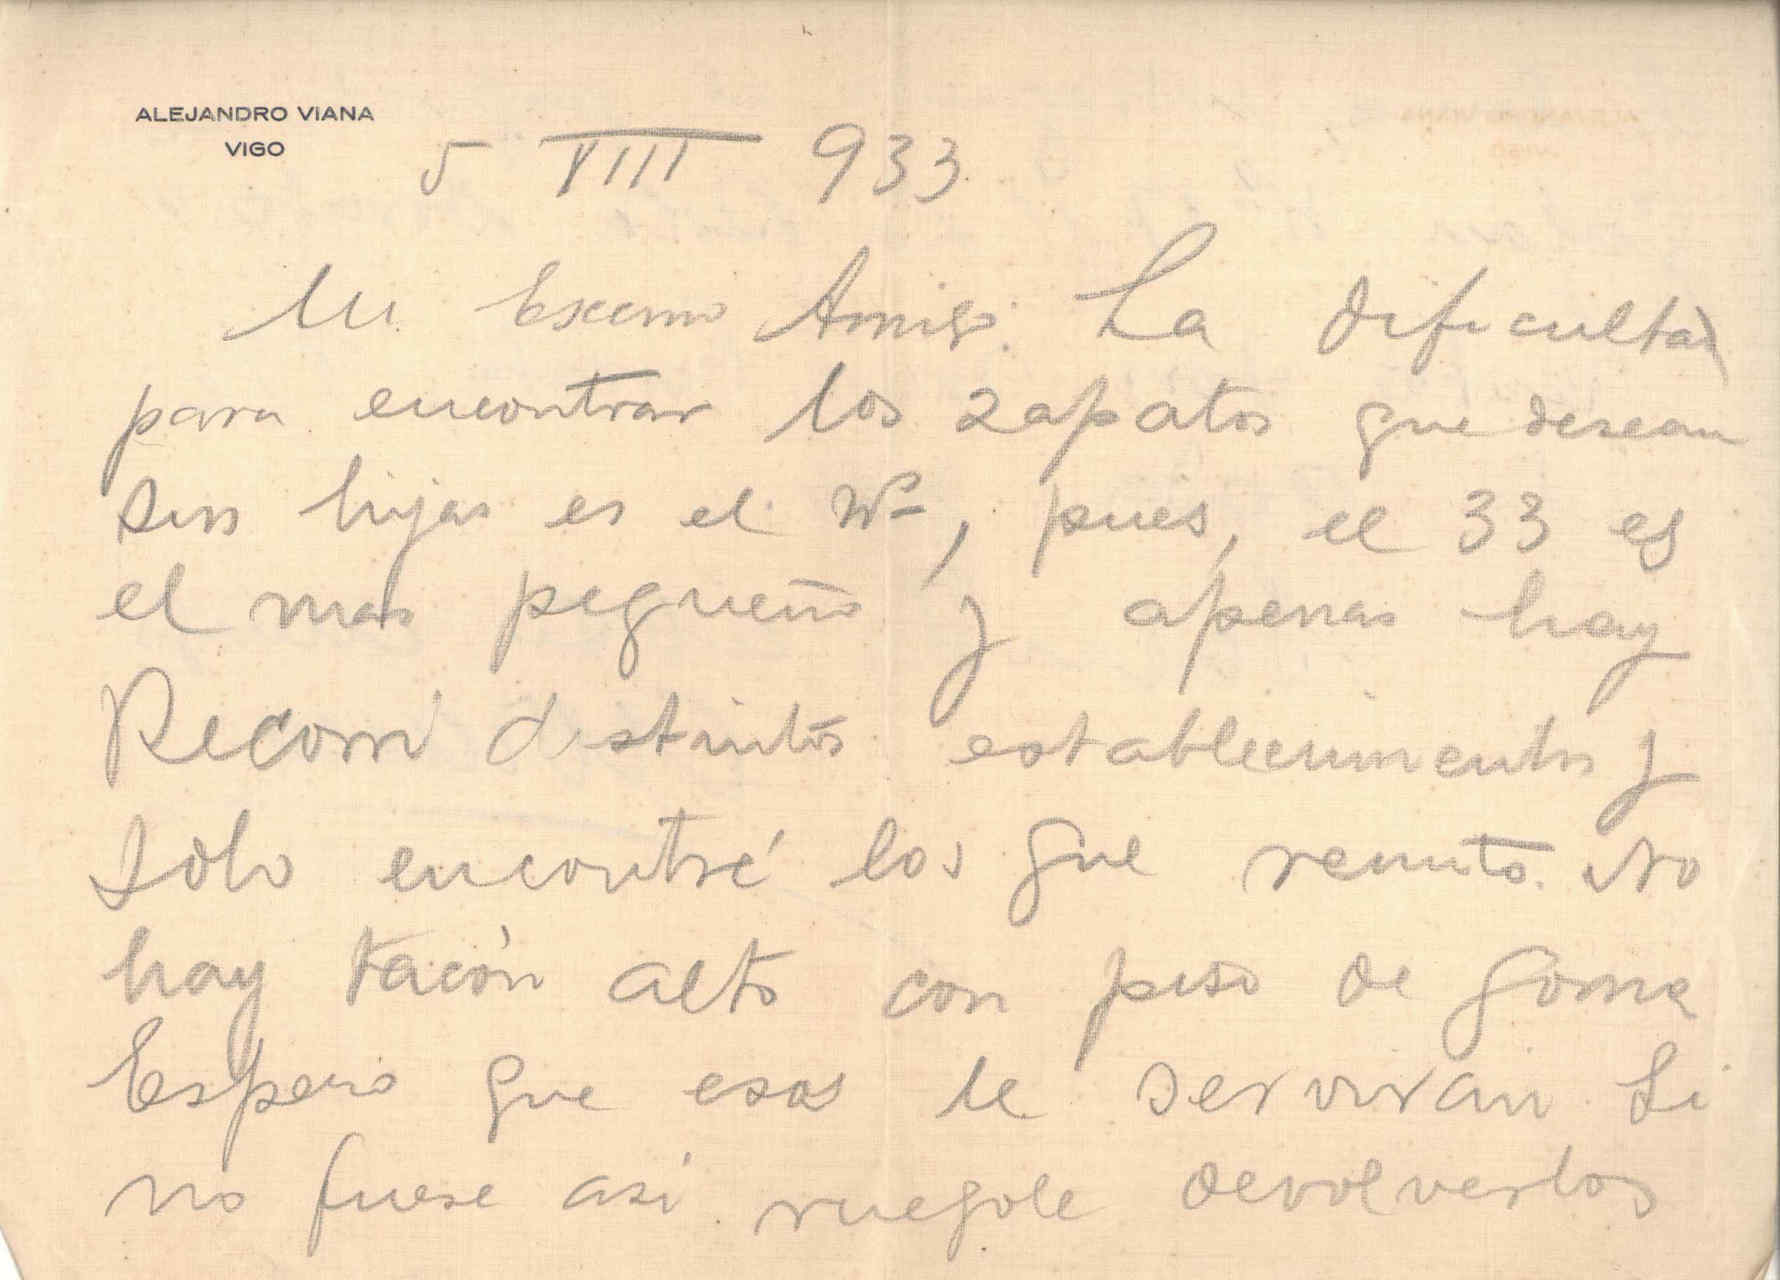 ALEJANDRO VIANA
VIGO
5 VIII 933
Mi Excmo Amigo: La dificultad
para encontrar los zapatos que desean
sus hijas es el Nº, pues, el 33 es
el mas pequeño y apenas hay
Recorri distintos establecimientos y
solo encontré los que remito. No
hay tacón alto con piso de goma
Espero que esos le servirán Si
no fuese asi ruegole devolverlos